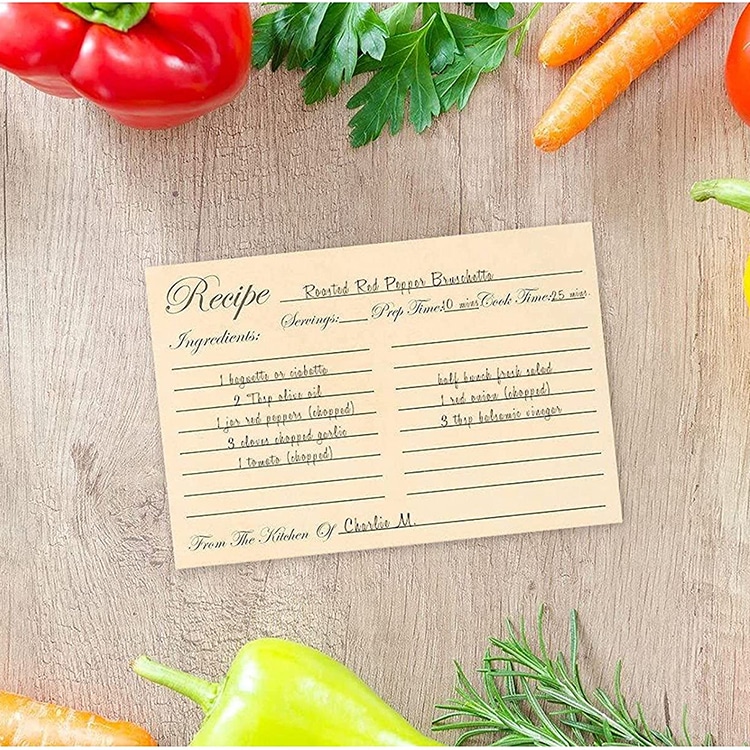 Recipe Roasted Red Pepper Bruschetta
Servings: Prep Time: 10 mins Cook Time: 25 mins.
Ingredients:
1 baguette or ciabatta
2 Tbsp olive oil
1 jar red peppers (chopped)
3 cloves chopped garlic
1 tomato (chopped)
half bunch fresh salad
1 red onion (chopped)
3 tbsp balsamic vinegar
From The Kitchen Of Charlie M.